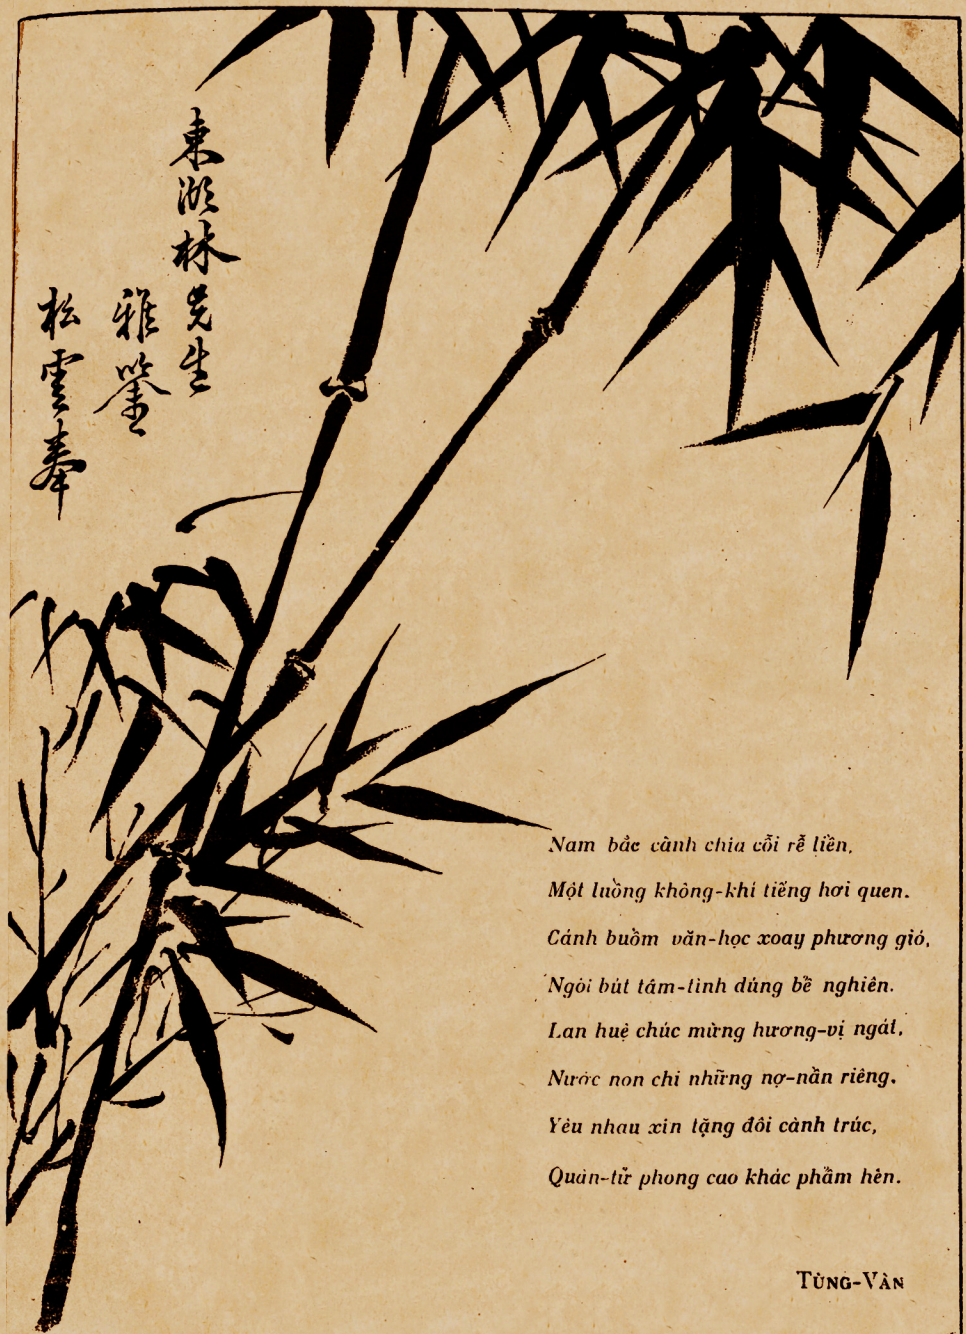 東湖林先生
雅鑒
松雲奉
Nam bắc cành chia cỗi rễ liền,
Một luồng không-khí tiếng hơi quen.
Cánh buồm văn-học xoay phương gió,
Ngòi bút tâm-tình dúng bể nghiên.
Lan huệ chúc mừng hương-vị ngát,
Nước non chi những nợ-nần riêng.
Yêu nhau xin tặng đôi cành trúc,
Quân-tử phong cao khác phẩm hèn.
TÙNG-VÂN